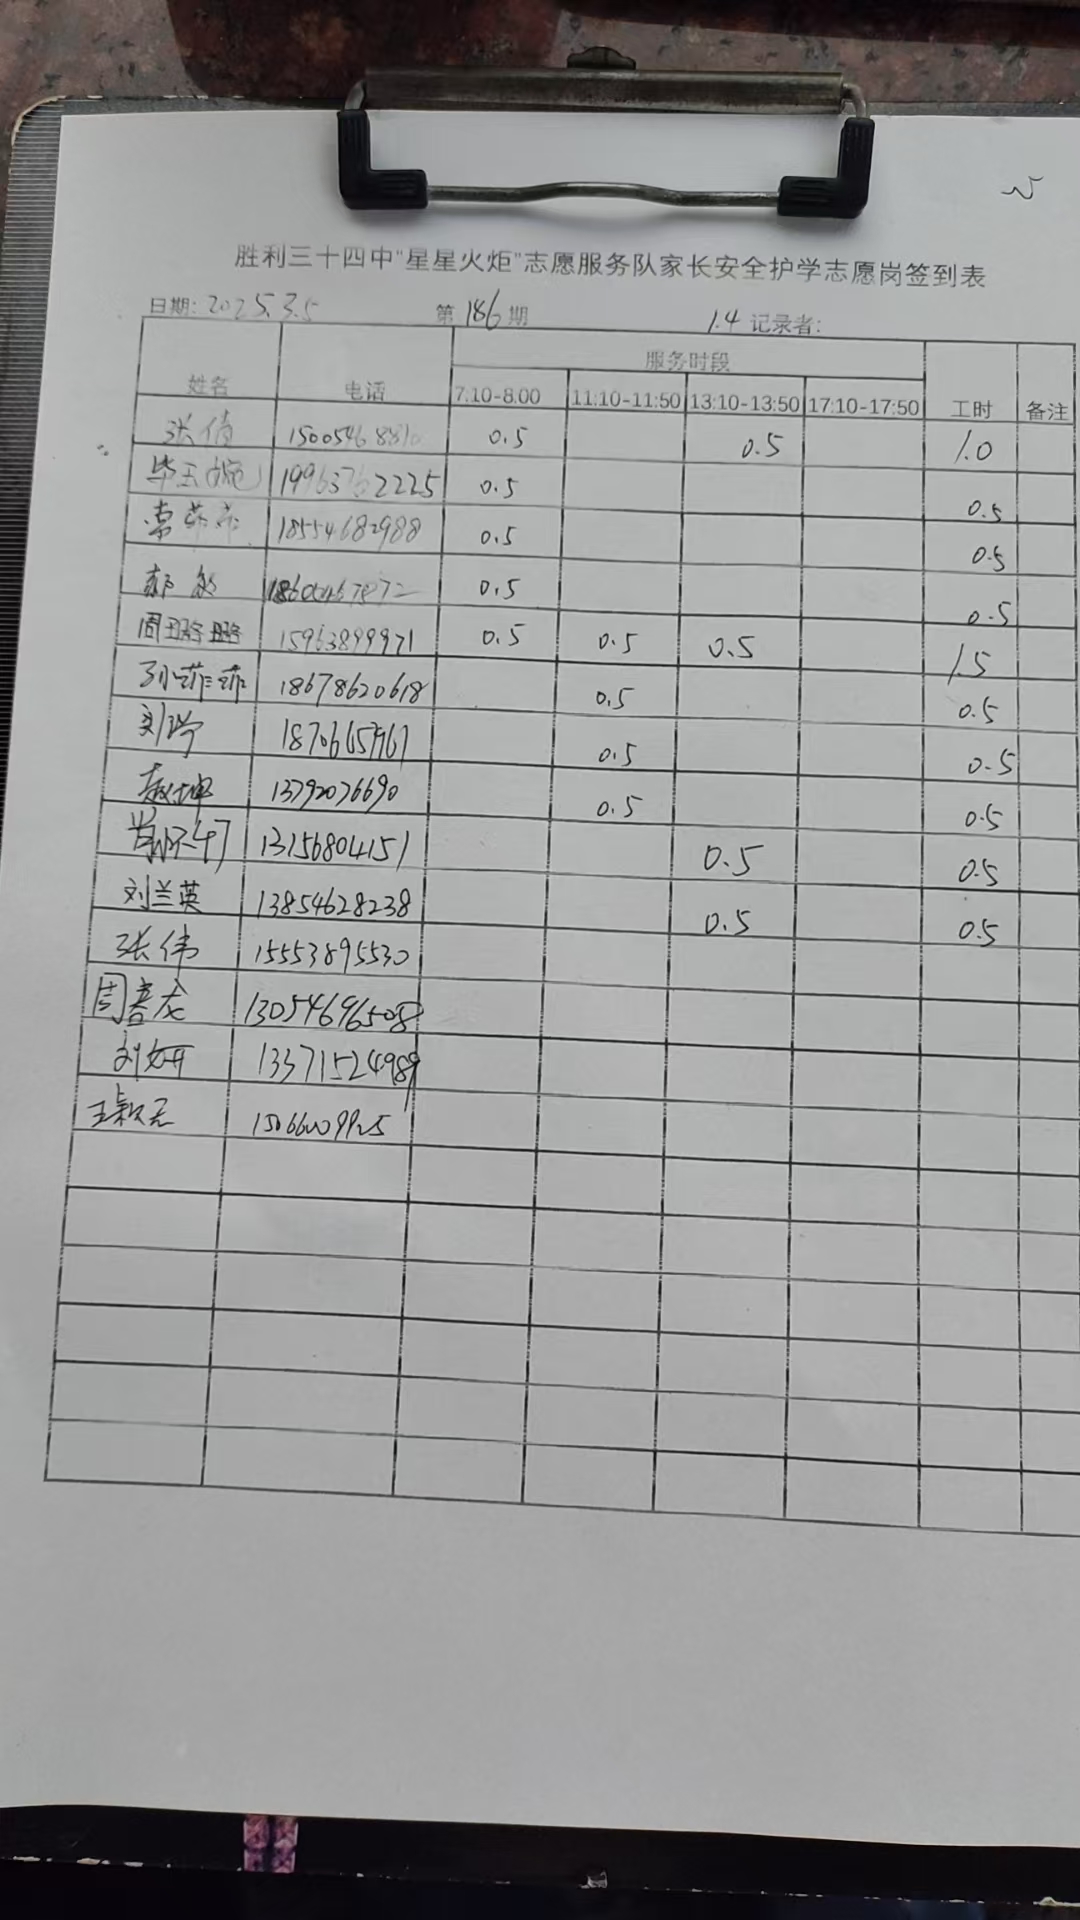 胜利三十四中"星星火炬"志愿服务队家长安全护学志愿岗签到表
日期: 2025.3.5 第 186 期 1.4 记录者:
姓名 电话 服务时段 工时 备注
7:10-8.00 11:10-11:50 13:10-13:50 17:10-17:50
张倩 0.5 0.5 1.0
毕玉 19963762225 0.5 0.5
常菲菲 18554682988 0.5 0.5
郝 0.5 0.5
周 15963899971 0.5 0.5 0.5 1.5
孙菲菲 18678620618 0.5 0.5
刘 0.5 0.5
赵坤 13792076690 0.5 0.5
13156804151 0.5 0.5
刘兰英 13854628238 0.5 0.5
张伟 15553895530
周喜龙 13054696508
刘妍 13371524989
王